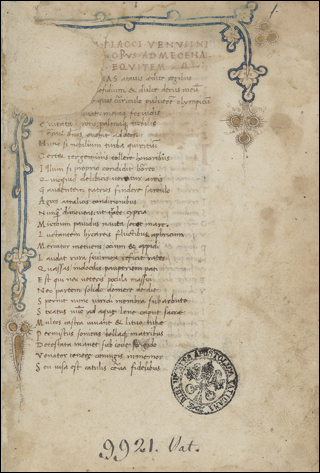 FLACCI VENUSINI
OPUS AD MECENA
EQUITEM
atavis edite regibus
& dulce decus meum
curriculo pulverem olympicum
fervidis
Evitata rotis palmaq nobilis
Terrarum dnos evehit ad deos
Hunc si mobilium turba quiritium
Certat tergeminis tollere honoribus
Illum si proprio condidit horreo
Quicquid de libicis verritur areis
Gaudentem patrios findere sarculo
Agros atalicis conditionibus
Nunq dimoveas ut trabe cypria
Mirtoum pavidus nauta secet mare
Luctantem hycareis fluctibus aphricum
Mercator metuens ocium & oppidi
Laudat rura sui mox reficit rates
Quassas indocilis pauperiem pati
Est qui nec veteris pocula massici
Nec partem solido demere de die
Spernit nunc viridi membra sub arbuto
Stratus nunc ad aque lene caput sacre
Multos castra iuvant & lituo tube
Permistus sonitus bellaq matribus
Detestata manet sub iove frigido
Venator tenere coniugis immemor
Seu visa est catulis cerva fidelibus
9921. Vat.